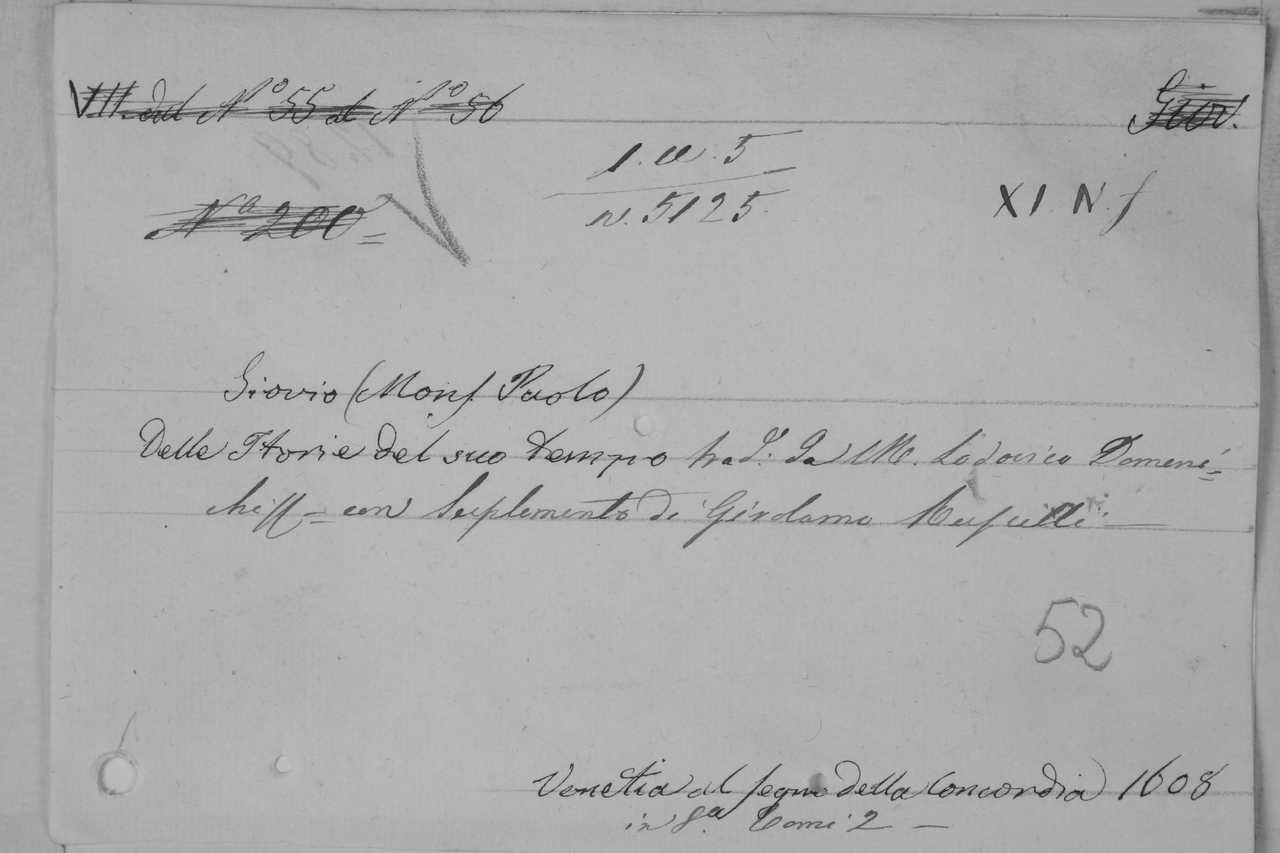 VIII. dal Nº 55 al Nº 56
Giov.
1. a. 5
Nª 200
n. 5125
XI. N. f
Giovio (Monſ Paolo)
Delle Storie del suo tempo trad.e da M. Lodovico Domeni=
chiſſ = con Suplemento di Girolamo Ruſcelli —
52
Venetia al ſegno della Concordia 1608
in 8ª Tomi 2 —